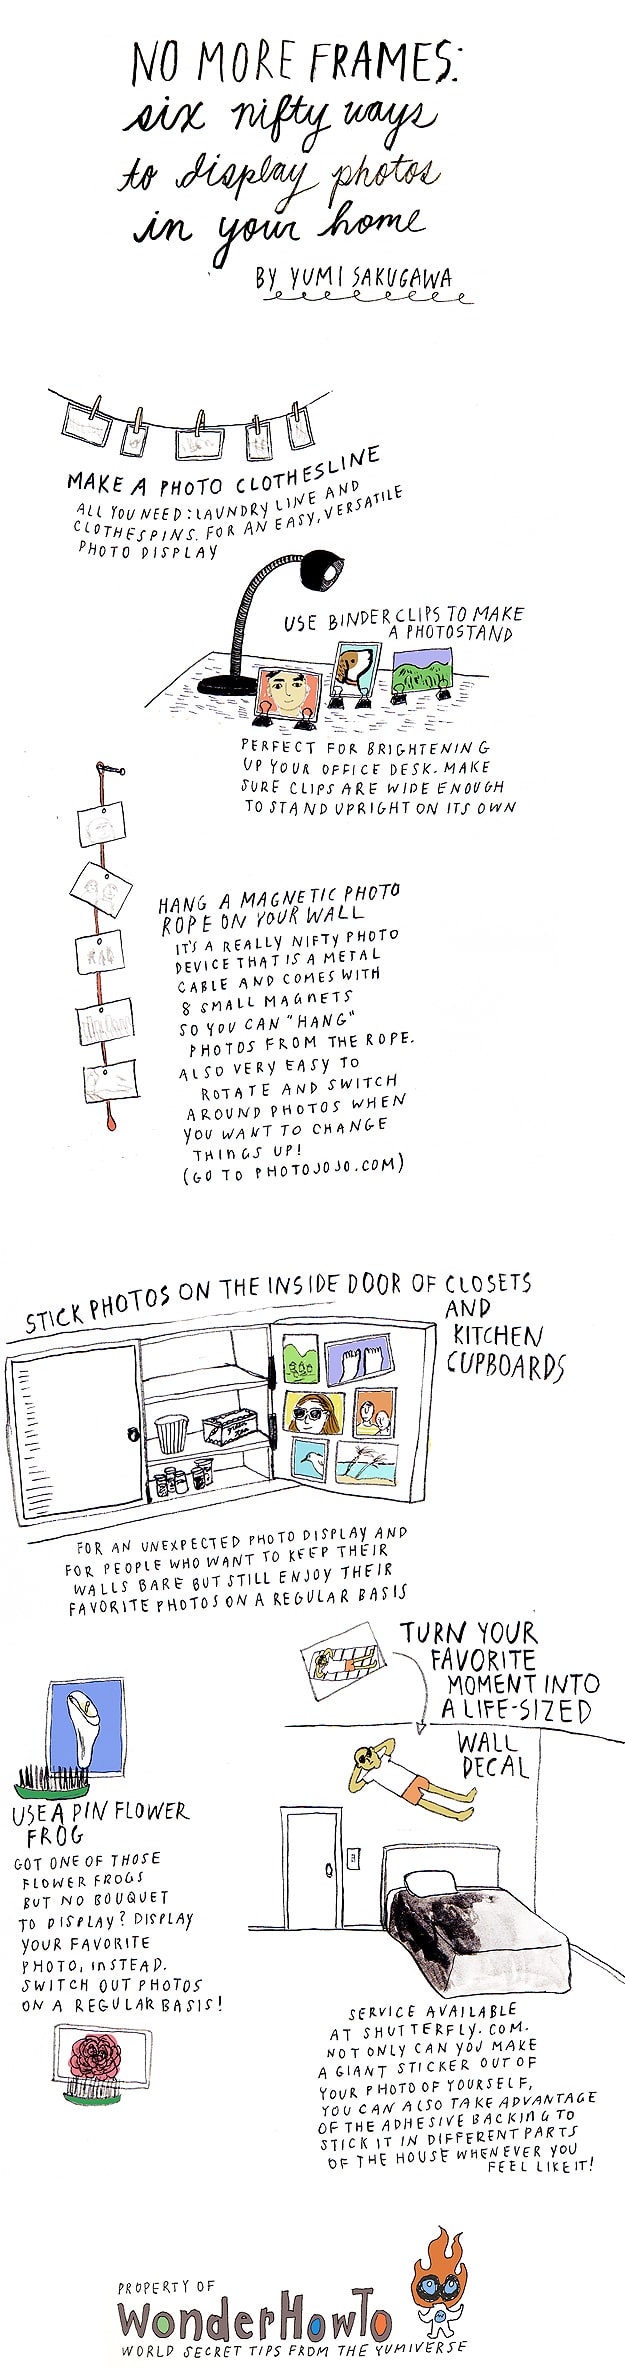 NO MORE FRAMES:
six nifty ways
to display photos
in your home
BY YUMI SAKUGAWA
MAKE A PHOTO CLOTHESLINE
ALL YOU NEED: LAUNDRY LINE AND
CLOTHESPINS. FOR AN EASY, VERSATILE
PHOTO DISPLAY
USE BINDER CLIPS TO MAKE
A PHOTOSTAND
PERFECT FOR BRIGHTENING
UP YOUR OFFICE DESK. MAKE
SURE CLIPS ARE WIDE ENOUGH
TO STAND UPRIGHT ON ITS OWN
HANG A MAGNETIC PHOTO
ROPE ON YOUR WALL
IT'S A REALLY NIFTY PHOTO
DEVICE THAT IS A METAL
CABLE AND COMES WITH
8 SMALL MAGNETS
SO YOU CAN "HANG"
PHOTOS FROM THE ROPE.
ALSO VERY EASY TO
ROTATE AND SWITCH
AROUND PHOTOS WHEN
YOU WANT TO CHANGE
THINGS UP!
(GO TO PHOTOJOJO.COM)
STICK PHOTOS ON THE INSIDE DOOR OF CLOSETS
AND
KITCHEN
CUPBOARDS
FOR AN UNEXPECTED PHOTO DISPLAY AND
FOR PEOPLE WHO WANT TO KEEP THEIR
WALLS BARE BUT STILL ENJOY THEIR
FAVORITE PHOTOS ON A REGULAR BASIS
TURN YOUR
FAVORITE
MOMENT INTO
A LIFE-SIZED
WALL
DECAL
USE A PIN FLOWER
FROG
GOT ONE OF THOSE
FLOWER FROGS
BUT NO BOUQUET
TO DISPLAY? DISPLAY
YOUR FAVORITE
PHOTO, INSTEAD.
SWITCH OUT PHOTOS
ON A REGULAR BASIS!
SERVICE AVAILABLE
AT SHUTTERFLY.COM.
NOT ONLY CAN YOU MAKE
A GIANT STICKER OUT OF
YOUR PHOTO OF YOURSELF,
YOU CAN ALSO TAKE ADVANTAGE
OF THE ADHESIVE BACKING TO
STICK IT IN DIFFERENT PARTS
OF THE HOUSE WHENEVER YOU
FEEL LIKE IT!
PROPERTY OF
WonderHowTo
WORLD SECRET TIPS FROM THE YUMIVERSE